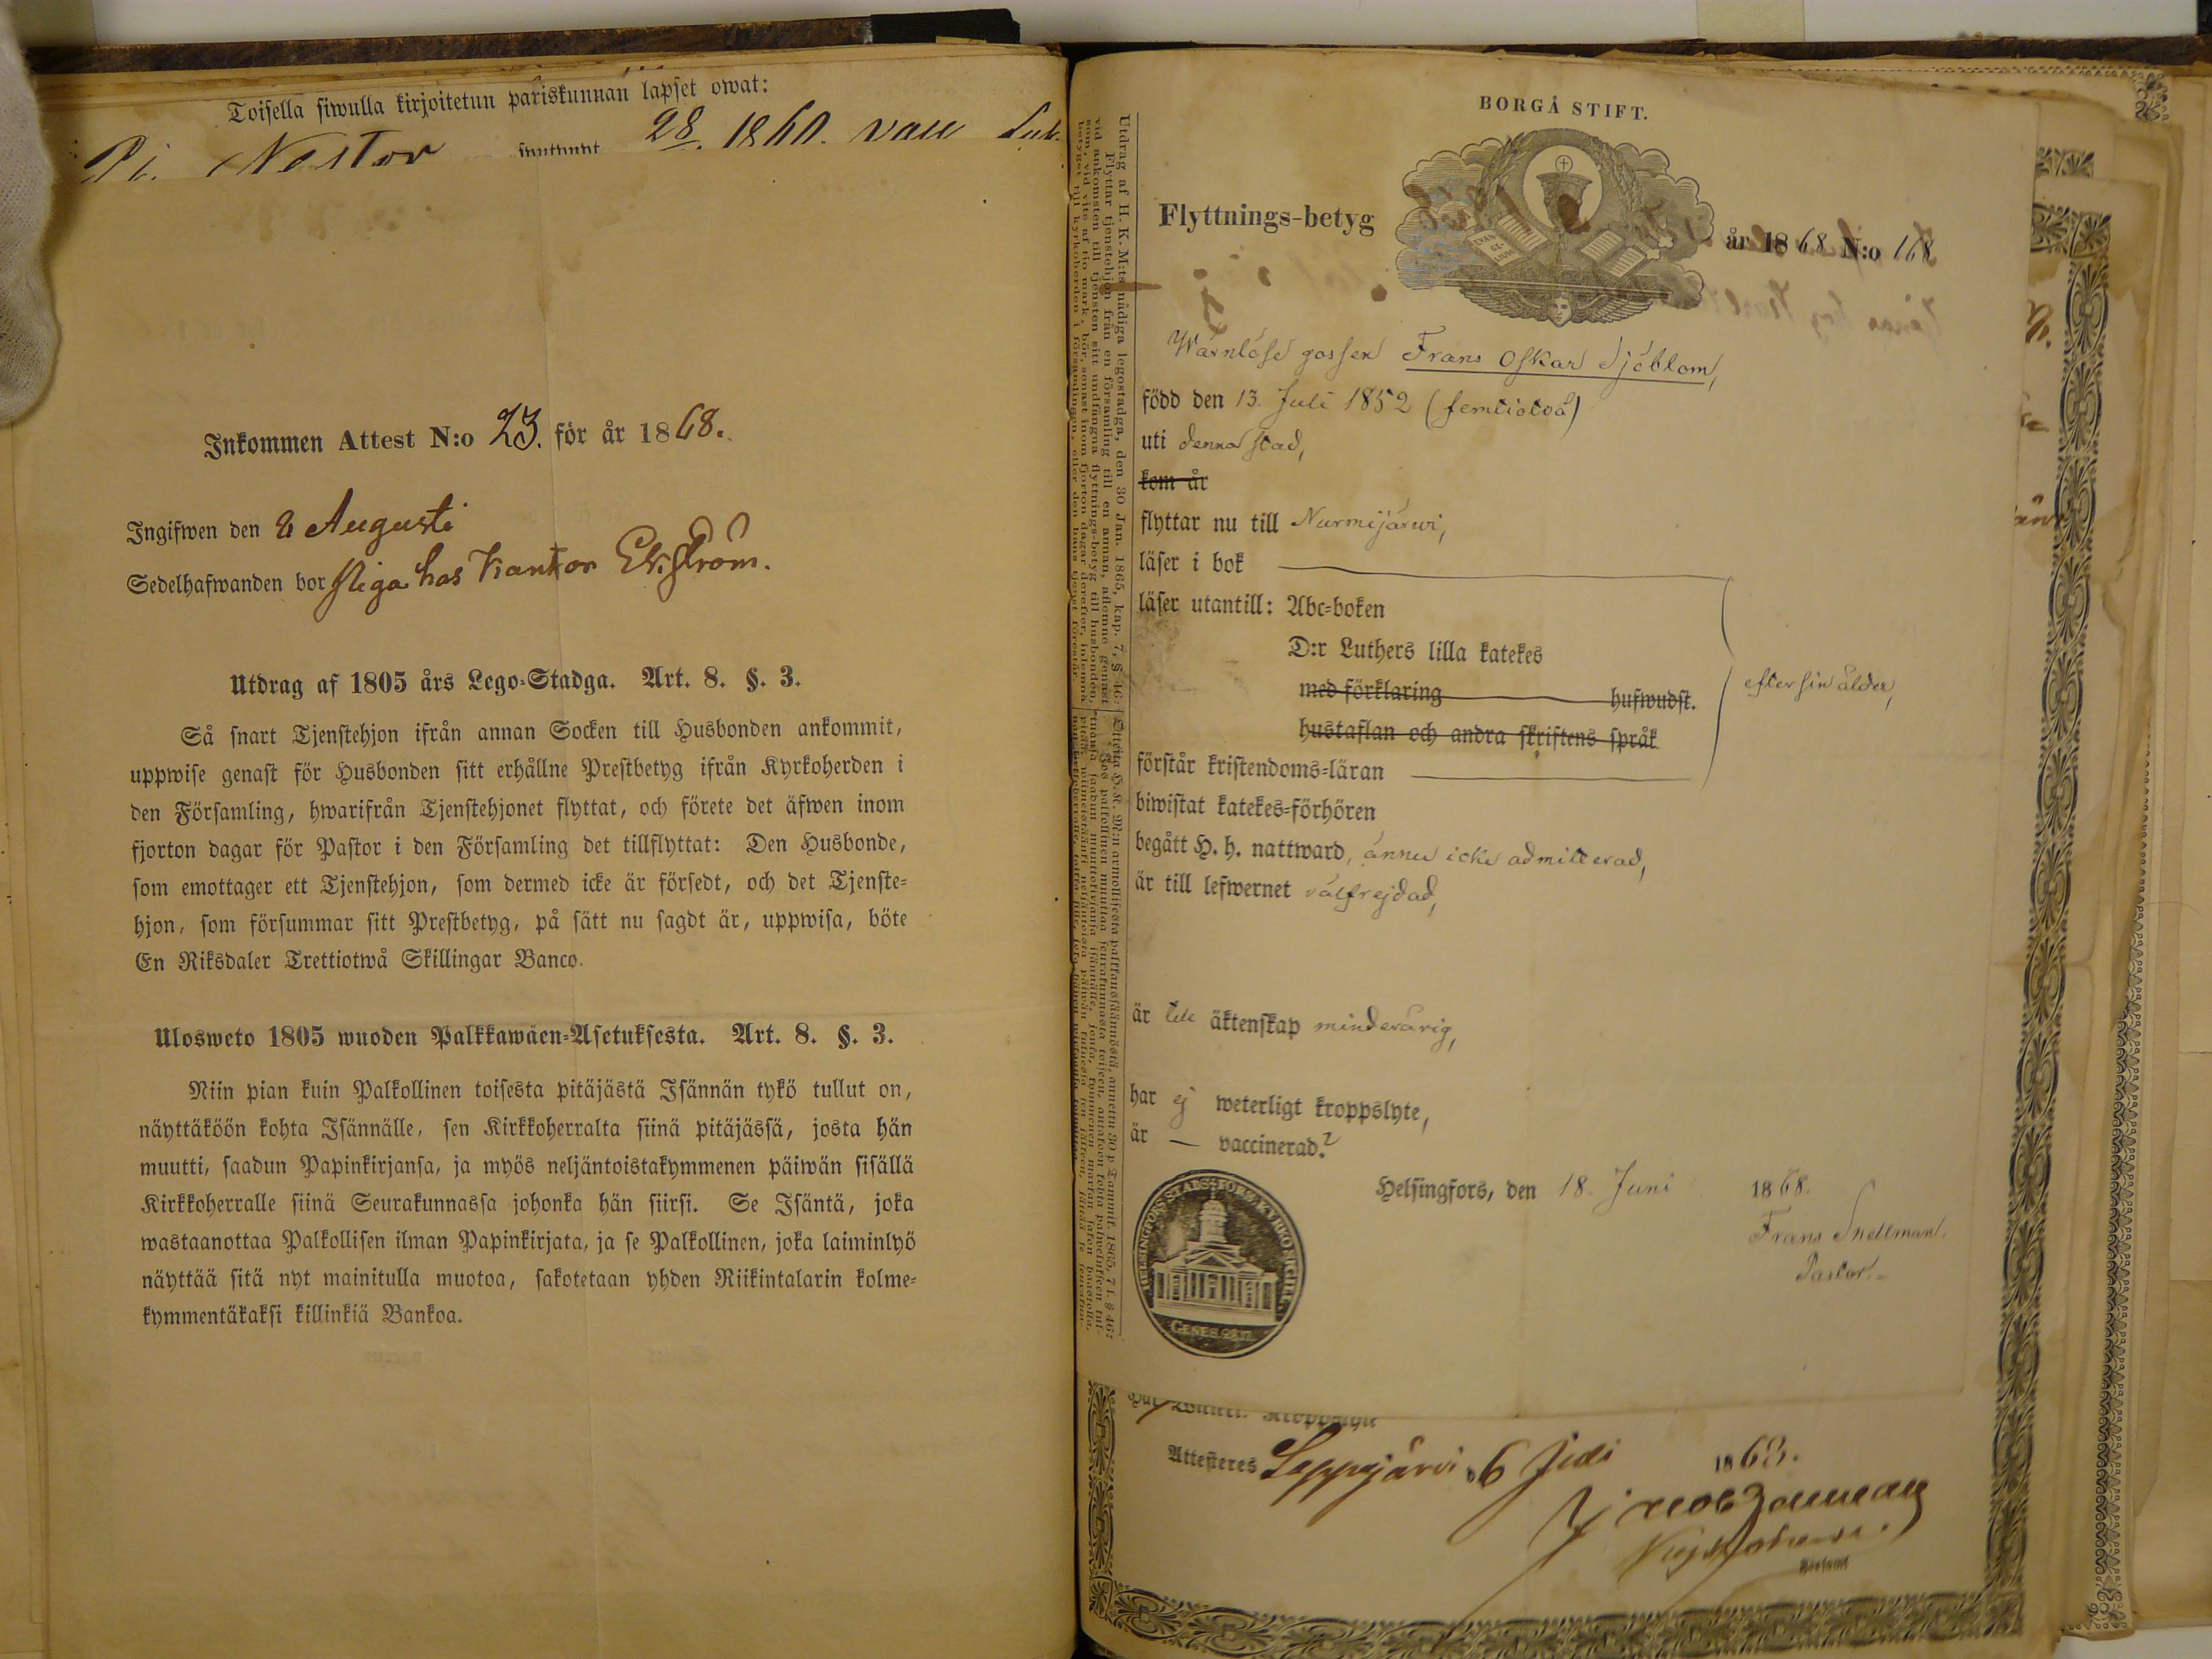 Toisella siwulla kirjoitetun pariskunnan lapset owat:
Pi. Nestor syntynyt 28. 1860. vacc
Inkommen Attest N:o 23. för år 1868.
Ingifwen den 2 Augusti
Sedelhafwanden bor hos Kantor Ekström.
Utdrag af 1805 års Lego-Stadga. Art. 8. §. 3.
Så snart Tjenstehjon ifrån annan Socken till Husbonden ankommit,
uppwise genast för Husbonden sitt erhållne Prestbetyg ifrån Kyrkoherden i
den Församling, hwarifrån Tjenstehjonet flyttat, och förete det äfwen inom
fjorton dagar för Pastor i den Församling det tillflyttat: Den Husbonde,
som emottager ett Tjenstehjon, som dermed icke är försedt, och det Tjenste-
hjon, som försummar sitt Prestbetyg, på sätt nu sagdt är, uppwisa, böte
En Riksdaler Trettiotwå Skillingar Banco.
Ulosweto 1805 wuoden Palkkawäen-Asetuksesta. Art. 8. §. 3.
Niin pian kuin Palkollinen toisesta pitäjästä Isännän tykö tullut on,
näyttäköön kohta Isännälle, sen Kirkkoherralta siinä pitäjässä, josta hän
muutti, saadun Papinkirjansa, ja myös neljäntoistakymmenen päiwän sisällä
Kirkkoherralle siinä Seurakunnassa johonka hän siirsi. Se Isäntä, joka
wastaanottaa Palkollisen ilman Papinkirjata, ja se Palkollinen, joka laiminlyö
näyttää sitä nyt mainitulla muotoa, sakotetaan yhden Riikintalarin kolme-
kymmentäkaksi killinkiä Bankoa.
Utdrag af H. K. M:ts nådiga legostadga, den 30 Jan. 1865, kap. 7, § 46:
Flyttar tjenstehjon från en församling till en annan, aflemne genast
vid ankomsten till tjensten sitt undfångna flyttnings-betyg till husbonden,
som, vid vite af tio mark, bör, senast inom fjorton dagar derefter, inlemna
betyget till kyrkoherden i församlingen, eller den hans tjenst förestår.
BORGÅ STIFT.
Flyttnings-betyg år 1868 N:o 168
EVAN GE- LIUM
Wärnlöse gossen Frans Oskar Sjöblom,
född den 13. Juli 1852 (femtiotvå)
uti denna stad,
kom år
flyttar nu till Nurmijärwi,
läser i bok
läser utantill: Abc-boken
D:r Luthers lilla katekes
med förklaring hufwudst.
efter sin ålder,
hustaflan och andra skriftens språk
förstår kristendoms-läran
biwistat katekes-förhören
begått H. h. nattward, ännu icke admitterad,
är till lefwernet välfrejdad,
är till äktenskap minderårig,
har ej weterligt kroppslyte,
är — vaccinerad?
Helsingfors, den 18. Juni 1868.
Frans Snellman.
Pastor.
Attesteres Lappajärvi d 6 Juli 1868.